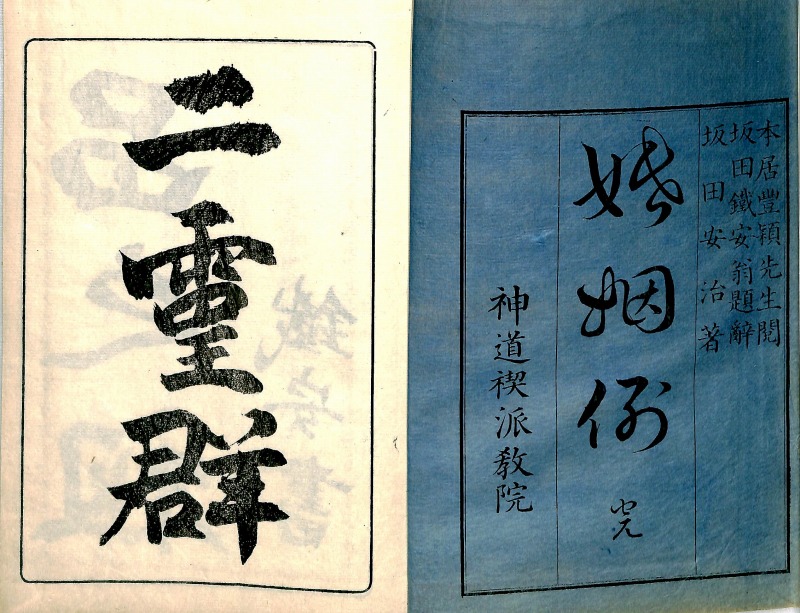 本居豐穎先生閲
坂田鐵安翁題辭
坂田安治著
婚姻例 完
神道禊派教院
二霊群